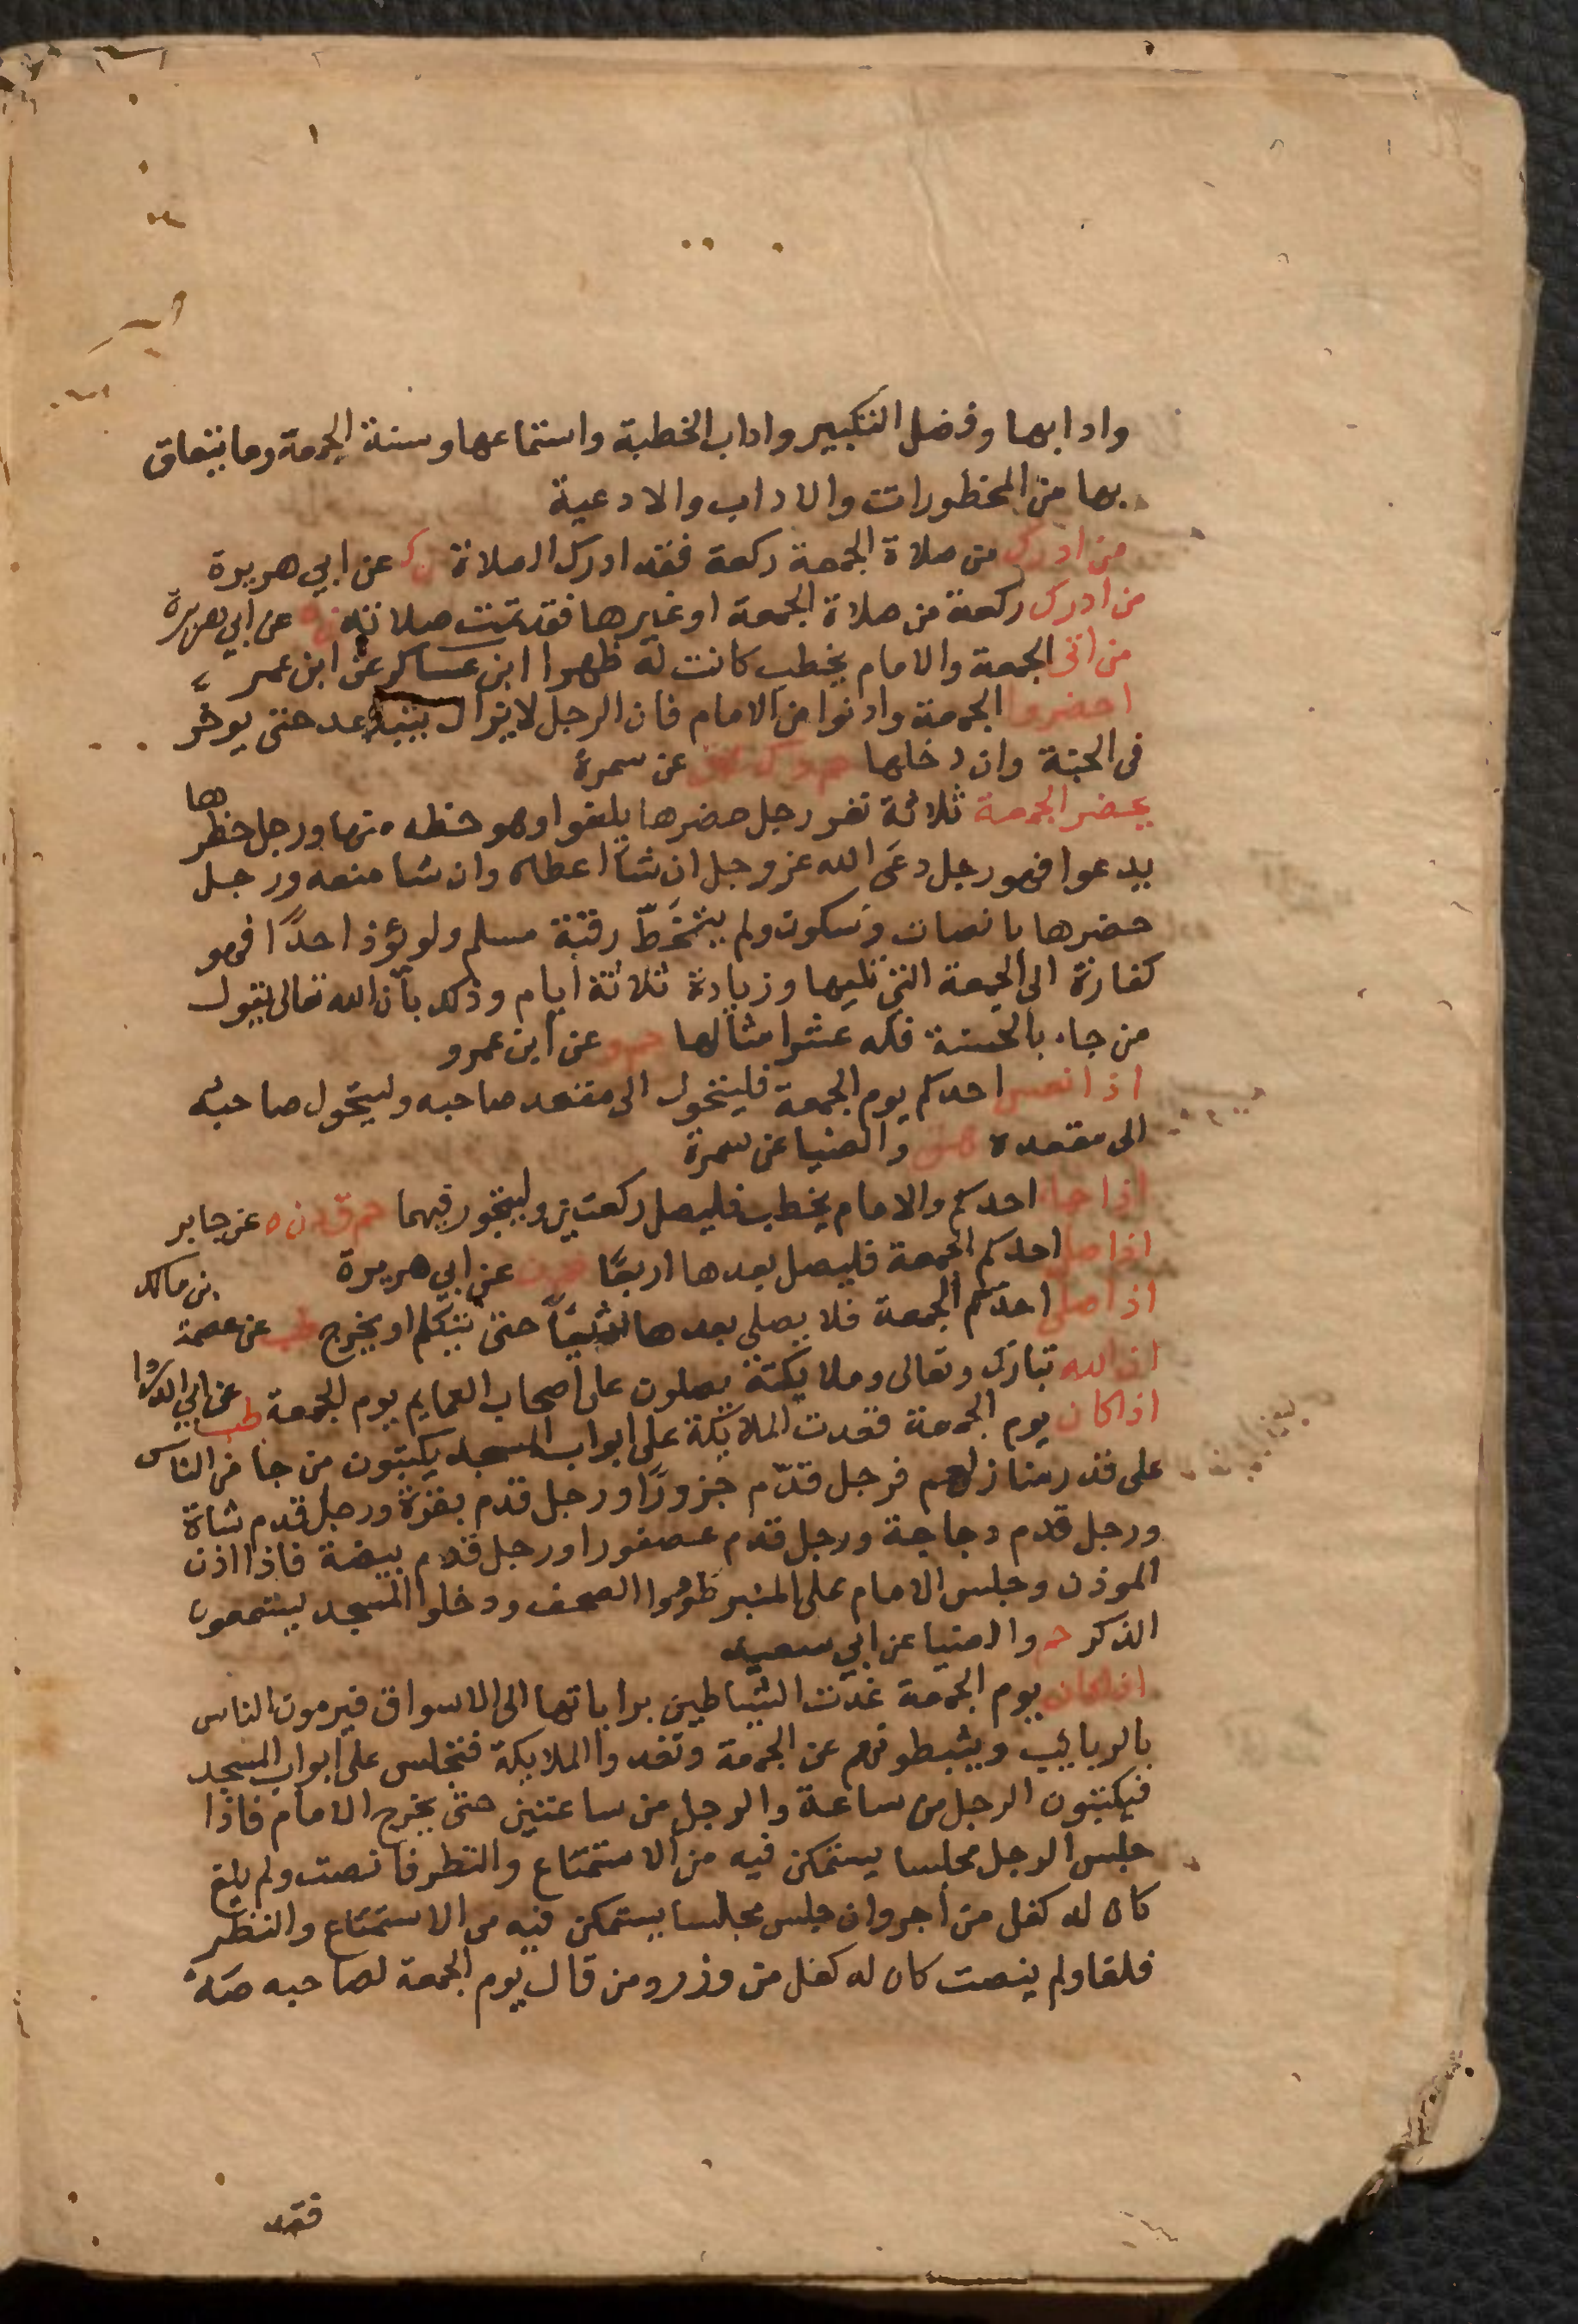 وادابها وفضل التبكير واداب الخطبة واستماعها وسنة الجمعة وما يتعلق
بها من المحظورات والاداب والادعية
من ادرك من صلاة الجمعة ركعة فقد ادرك الصلاة ن ك عن ابي هريرة
من ادرك ركعة من صلاة الجمعة او غيرها فقد تمت صلاته ن ه عن ابي هريرة
من اتى الجمعة والامام يخطب كانت له ظهرا ابن عساكر عن ابن عمر
احضروا الجمعة وادنوا من الامام فان الرجل لا يزال يتباعد حتى يوخر
في الجنة وان دخلها حم د ك هق عن سمرة
يحضر الجمعة ثلاثة نفر رجل حضرها يلغوا وهو حظه منها ورجل حظرها
يدعوا فهو رجل دعى الله عز وجل ان شاأ اعطاه وان شا منعه ورجل
حضرها بانصات وسكوت ولم يتخط رقبة مسلم ولو يؤذ احدًا فهو
كفارة الى الجمعة التي تليها وزيادة ثلاثة ايام وذلك بأن الله تعالى يقول
من جاء بالحسنة فله عشر امثالها حم د عن ابن عمرو
اذا نعس احدكم يوم الجمعة فليتحول الى مقعد صاحبه وليتحول صاحبه
الى مقعده هق والضيا عن سمرة
اذا جاء احدكم والامام يخطب فليصل ركعتين وليتجوز فيهما حم ق د ن ه عن جابر
اذا صلى احدكم الجمعة فليصل بعدها اربعًا حم م ن عن ابي هريرة
اذا صلى احدكم الجمعة فلا يصلي بعدها شيئًا حتى يتكلم او يخرج طب عن عصمة بن مالك
ان الله تبارك وتعالى وملايكته يصلون على اصحاب العمايم يوم الجمعة طب عن ابي الدردا
اذا كان يوم الجمعة قعدت الملائكة على ابواب المسجد يكتبون من جا من الناس
على قدر منازلهم فرجل قدّم جزورًا ورجل قدم بقرة ورجل قدم شاة
ورجل قدم دجاجة ورجل قدم عصفورا ورجل قدم بيضة فاذا اذن
الموذن وجلس الامام على المنبر طووا الصحف ودخلوا المسجد يستمعون
الذكر حم والضيا عن ابي سعيد
اذا كان يوم الجمعة غدت الشياطين براياتها الى الاسواق فيرمون الناس
بالربائيب ويثبطونهم عن الجمعة وتغدوا الملايكة فتجلس على ابواب المسجد
فيكتبون الرجل من ساعة والرجل من ساعتين حتى يخرج الامام فاذا
جلس الرجل مجلسا يستمكن فيه من الاستمتاع والنظر فانصت ولم يلغ
كان له كفل من اجر وان جلس مجلسا يستمكن فيه من الاستمتاع والنظر
فلغا ولم ينصت كان له كفل من وزر ومن قال يوم الجمعة لصاحبه صه
فقد